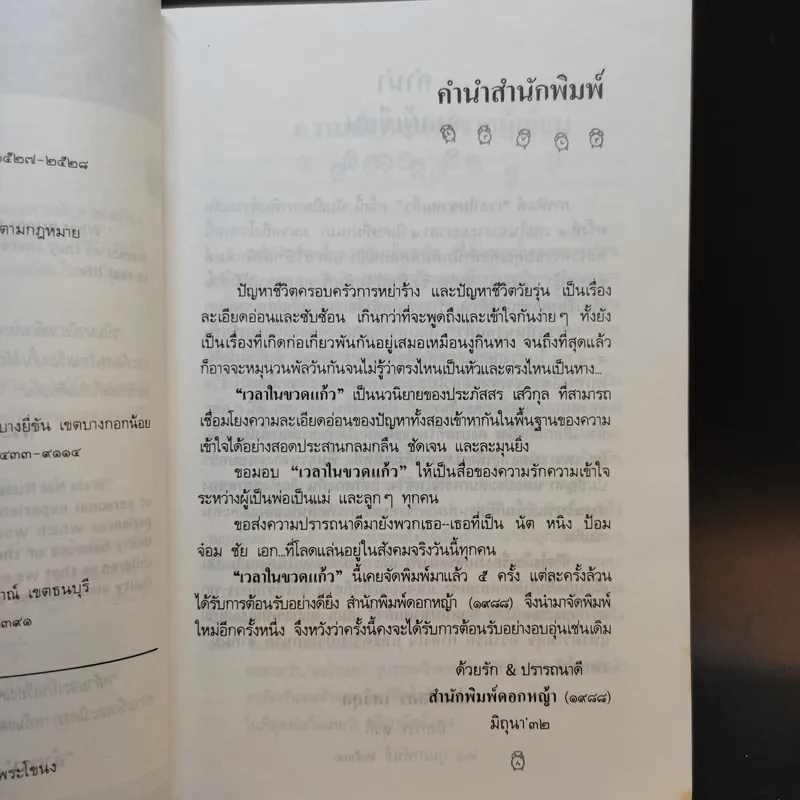 ๒๕๒๗-๒๕๒๘
ตามกฎหมาย
บางยี่ขัน เขตบางกอกน้อย
๔๓๓-๙๑๑๔
เขตธนบุรี
๓๙๑
พระโขนง
คำนำสำนักพิมพ์
ปัญหาชีวิตครอบครัวการหย่าร้าง และปัญหาชีวิตวัยรุ่น เป็นเรื่อง
ละเอียดอ่อนและซับซ้อน เกินกว่าที่จะพูดถึงและเข้าใจกันง่ายๆ ทั้งยัง
เป็นเรื่องที่เกิดก่อเกี่ยวพันกันอยู่เสมอเหมือนงูกินหาง จนถึงที่สุดแล้ว
ก็อาจจะหมุนวนพัลวันกันจนไม่รู้ว่าตรงไหนเป็นหัวและตรงไหนเป็นหาง...
“เวลาในขวดแก้ว” เป็นนวนิยายของประภัสสร เสวิกุล ที่สามารถ
เชื่อมโยงความละเอียดอ่อนของปัญหาทั้งสองเข้าหากันในพื้นฐานของความ
เข้าใจได้อย่างสอดประสานกลมกลืน ชัดเจน และละมุนยิ่ง
ขอมอบ “เวลาในขวดแก้ว” ให้เป็นสื่อของความรักความเข้าใจ
ระหว่างผู้เป็นพ่อเป็นแม่ และลูกๆ ทุกคน
ขอส่งความปรารถนาดีมายังพวกเธอ--เธอที่เป็น นัต หนิง ป้อม
จ๋อม ชัย เอก...ที่โลดแล่นอยู่ในสังคมจริงวันนี้ทุกคน
“เวลาในขวดแก้ว” นี้เคยจัดพิมพ์มาแล้ว ๕ ครั้ง แต่ละครั้งล้วน
ได้รับการต้อนรับอย่างดียิ่ง สำนักพิมพ์ดอกหญ้า (๑๙๘๘) จึงนำมาจัดพิมพ์
ใหม่อีกครั้งหนึ่ง จึงหวังว่าครั้งนี้คงจะได้รับการต้อนรับอย่างอบอุ่นเช่นเดิม
ด้วยรัก & ปรารถนาดี
สำนักพิมพ์ดอกหญ้า (๑๙๘๘)
มิถุนา'๓๒